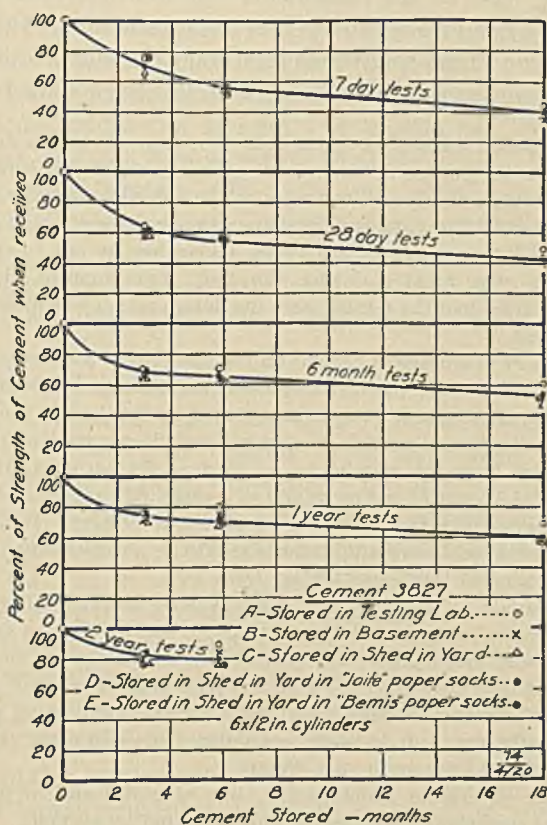 Percent of Strength of Cement when received
100
80
60
40
20
0
7 day tests
100
80
60
40
20
0
28 day tests
100
80
60
40
20
0
6 month tests
100
80
60
40
20
0
1 year tests
100
80
60
40
20
0
2 year tests
Cement 3827
A-Stored in Testing Lab.
B-Stored in Basement
C-Stored in Shed in Yard
D-Stored in Shed in Yard in "Jaite" paper socks
E-Stored in Shed in Yard in "Bemis" paper socks
6x12 in. cylinders
94
4/20
0 2 4 6 8 10 12 14 16 18
Cement Stored - months